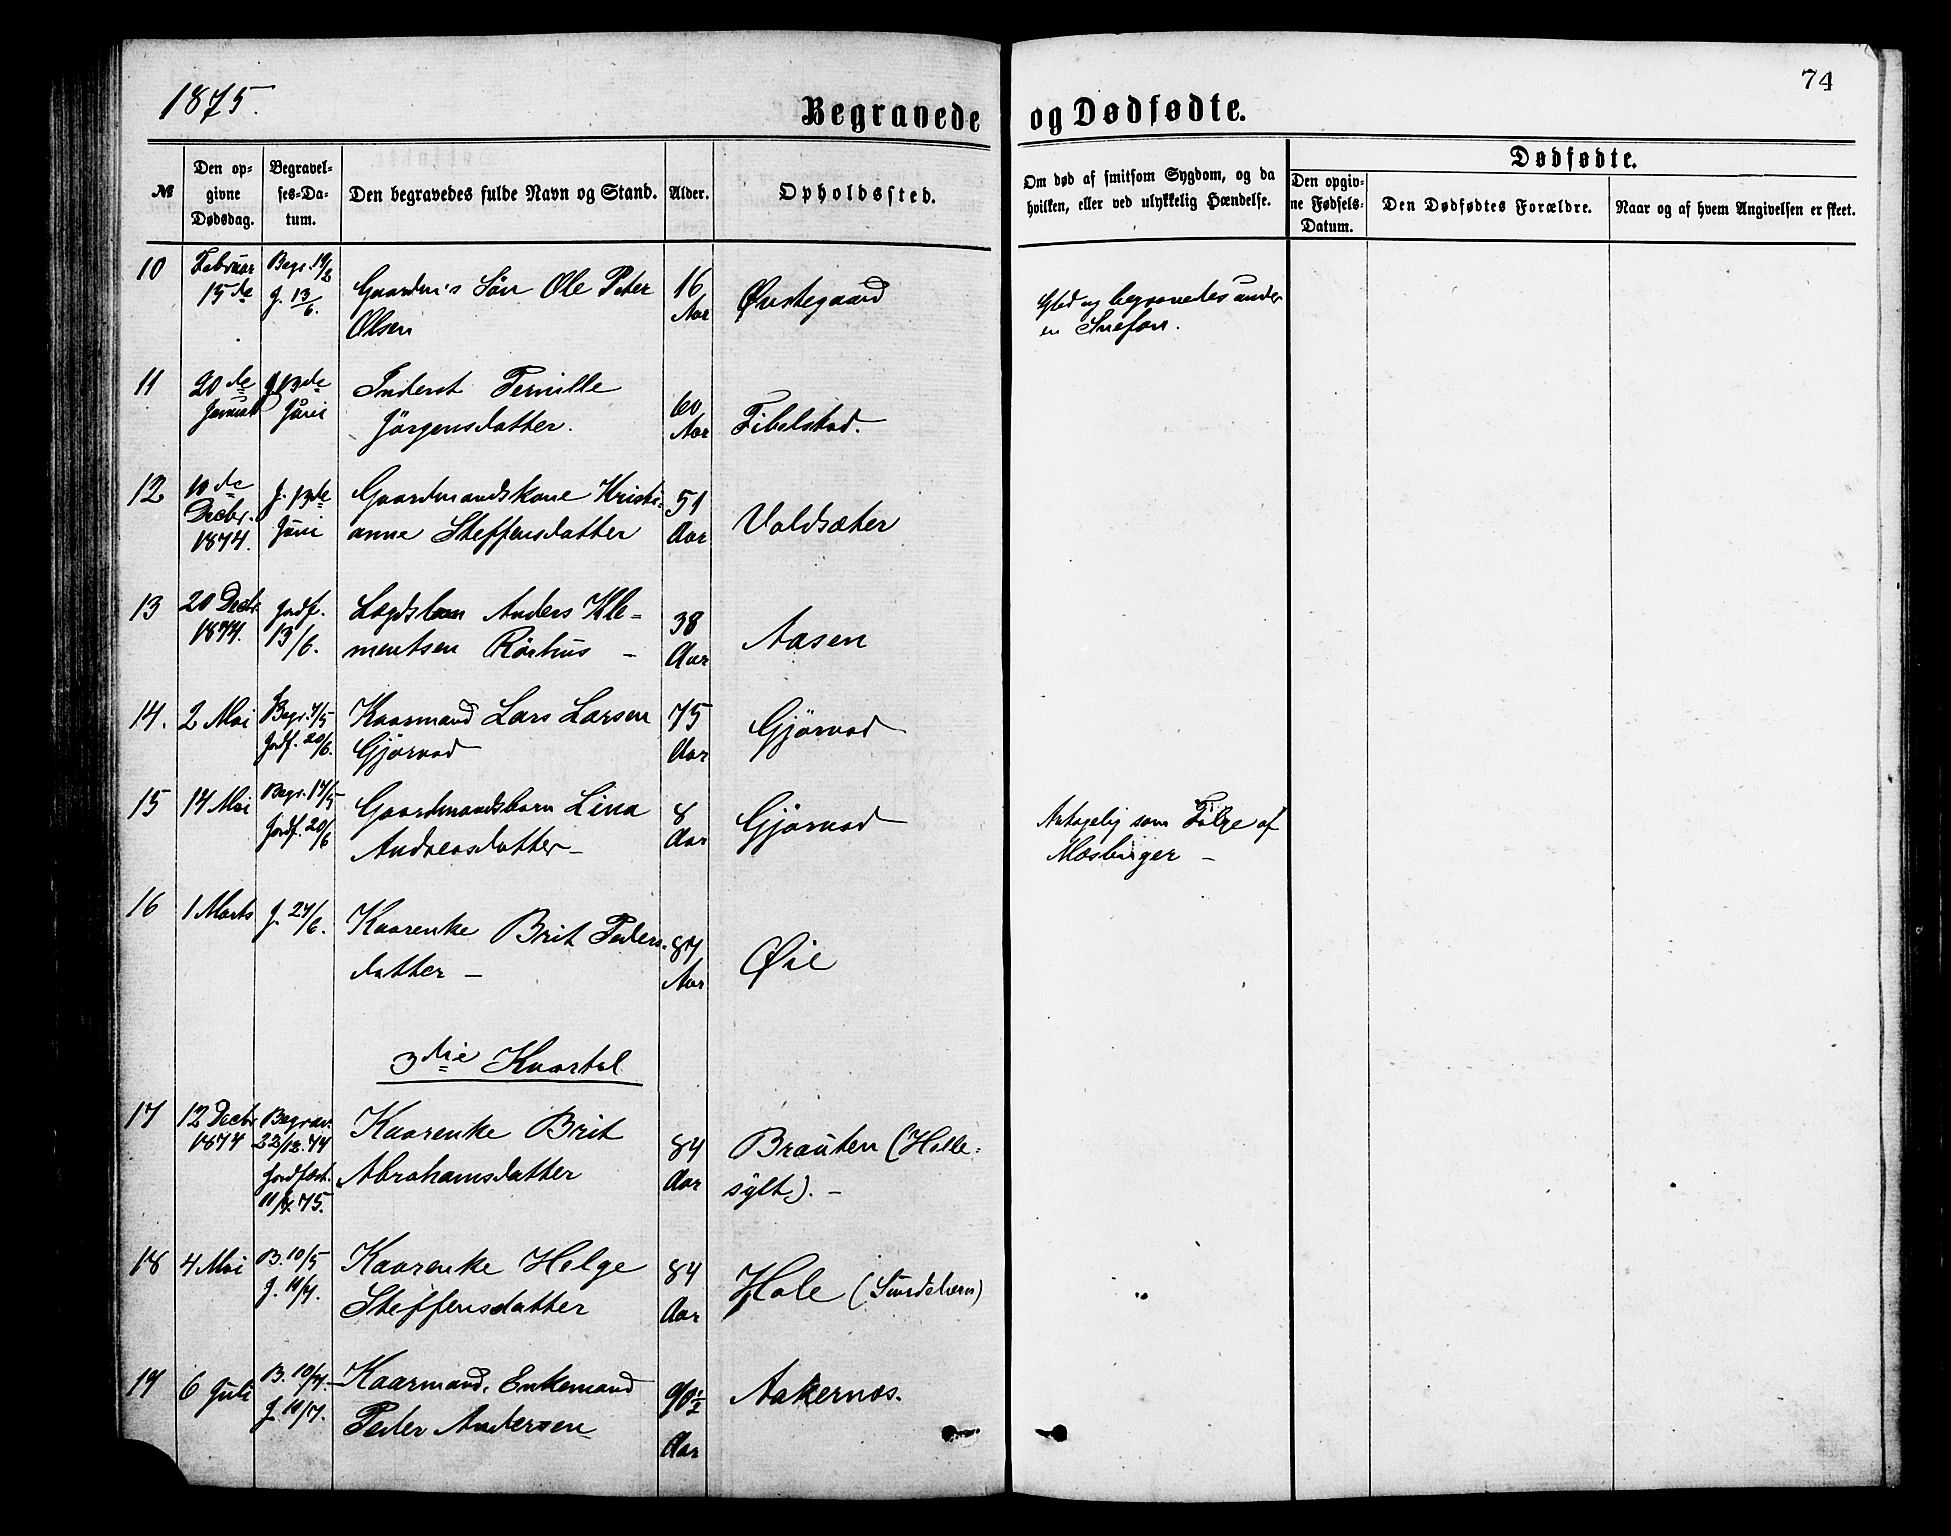 1875.
Begravede og Dødfødte.
74
№
Den op-
givne
Dødsdag.
Begravel-
ses-Da-
tum.
Den begravedes fulde Navn og Stand.
Alder.
Opholdssted.
Om død af smitsom Sygdom, og da
hvilken, eller ved ulykkelig Hændelse.
Dødfødte.
Den opgiv-
ne Fødsels-
Datum.
Den Dødfødtes Forældre.
Naar og af hvem Angivelsen er skeet.
10 Februar 15de Begr. 19/2 J. 13/6. Gaardm's Søn Ole Peter
Olsen 16 Aar Øvstegaard begravedes under
en Snefon.
11 20de Januar J. 13de Juni Inderst Pernille
Jörgensdatter. 60 Aar Tibelstad.
12 10de Decbr. 1874. J. 13de Juni Gaardmandskone Kristi-
anne Steffensdatter 51 Aar Valdsæter
13 20 Decbr. 1874. Jordf. 13/6. Lægdslem Anders Kle-
mentsen Rørhus – 38 Aar Aasen
14. 2 Mai Begr. 7/5 Jordf. 20/6. Kaarmand Lars Larsen
Gjørvad 75 Aar Gjørvad
15 14 Mai Begr. 17/5 Jordf. 20/6 Gaardmandsbarn Lina
Andreasdatter – 8 Aar Gjørvad Antagelig som Følge af
Mæslinger –
16 1 Marts J. 27/6. Kaarenke Brit Peders-
datter – 87 Aar Øie
3die Kvartal
17 12 Decbr 1874 Begrav. 22/12. 74 Jordfæst. 11/7. 75. Kaarenke Brit
Abrahamsdatter 84 Aar Brauten (Helle-
sylt). –
18 4 Mai B. 10/5 J. 11/7. Kaarenke Helge
Steffensdatter 84 Aar Hole (
19 6 Juli B. 10/7. J. 11/7. Kaarmand, Enkemand
Peder Andersen 90½ Aar Aakernæs.